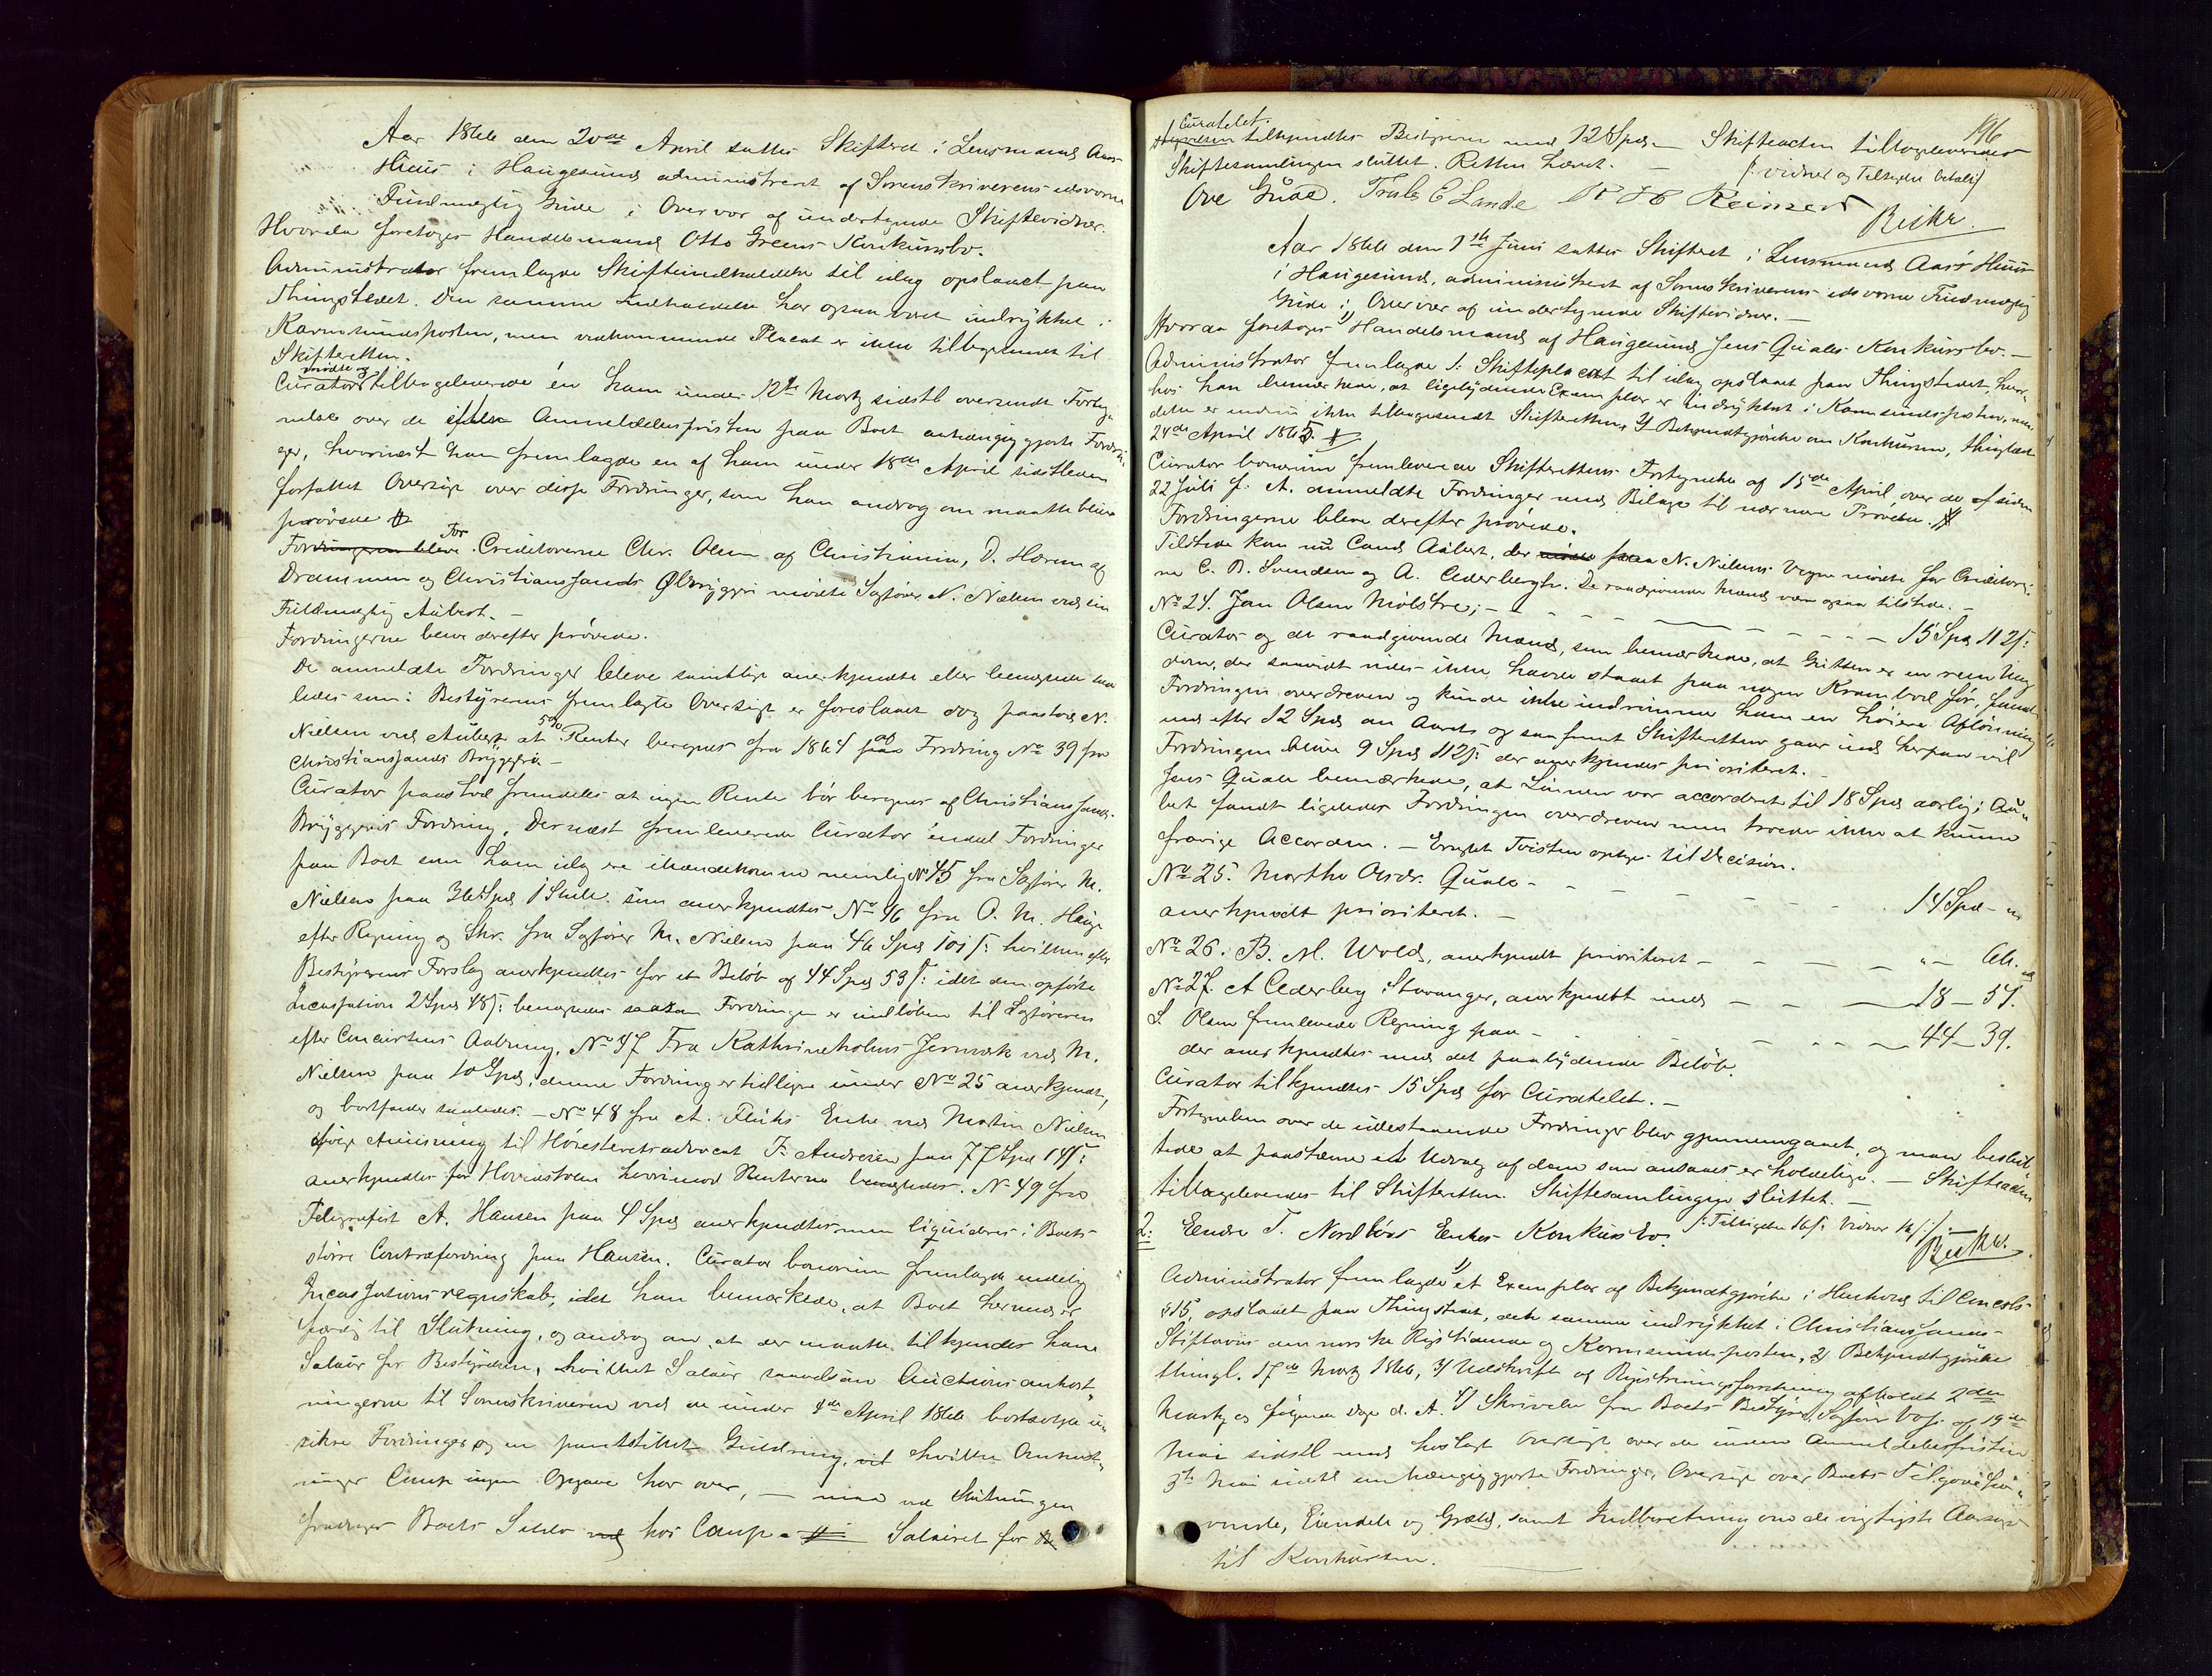 Aar 1866 den 20de April sattes Skifteret i Lensmand Aars
Huus i Haugesund administreret af Sorenskriverens edsvorne
Fuldmægtig Gude i Overvær af undertegnede Skiftevidner.
Hvorda foretoges Handelsmand Otto Greens Konkursbo.
Administrator fremlagde Skifteindkaldelse til idag opslaaet paa
Thingstedet. Den samme Indkaldelse har ogsaa været indrykket i
Karmsundsposten, men vedkommende Placat er ikke tilbagekommet til
Skifteretten.
Curator mødte og tilbageleverede en ham under 12te Marts sidstl. oversendt Forteg-
nelse over de efter Anmeldelsesfristen paa Boet anhængiggjorte Fordrin-
ger, hvornæst han fremlagde en af ham under 18de April sidstleden
forfattet Oversigt over disse Fordringer, som han androg om maatte blive
prøvede #
Fordringerne bleve For Creditorerne Chr. Olsen af Christiania, D. Hærem af
Drammen og Christianssands Ølbryggeri mødte Sagfører N. Nielsen ved sin
Fuldmægtig Aubert. –
Fordringerne bleve derefter prøvede.
De anmeldte Fordringer bleve samtlige anerkjendte eller benægtede saa-
ledes som i Bestyrerens fremlagte Oversigt er foreslaaet dog paastod N.
Nielsen ved Aubert at 5% Renter beregnes fra 1864 af Fordring No 39 fra
Christianssands Bryggeri –
Curator paastod fremdeles at ingen Rente bør beregnes af Christianssands
Bryggeris Fordring. Dernæst fremleverede Curator endeel Fordringer
paa Boet som ham idag ere ihændekomne nemlig No 45 fra Sagfører M.
Nielsen paa 36 Spd 1 Skill. som anerkjendtes No 46 fra O. M. Hauge
efter Regning og Skr. fra Sagfører M. Nielsen paa 46 Spd 101 ß: hvilken efter
Bestyrerens Forslag anerkjendtes for et Beløb af 44 Spd 53 ß: idet den opførte
Incassation 2 Spd 48 ß: benægtedes saasom Fordringen er indløben til Sagføreren
efter Concursens Aabning. No 47 Fra Kathrineholms Jernværk ved M.
Nielsen paa 10 Spd, denne Fordring er tidligere under No 25 anerkjendt,
og bortfalder saaledes. – No 48 fra A. Enke ved Martin Nielsen
ifølge Anvisning til Høiesteretsadvocat F. Andresen paa 77 Spd 14 ß:
anerkjendtes for Hovedstolen hvorimod Renterne benægtedes. No 49 fra
Telegrafist A. Hansen paa 4 Spd anerkjendtes men liquideres i Boets
større Contrafordring paa Hansen. Curator bonorum fremlagde endelig
Incassationsregnskab, idet han bemærkede, at Boet hermed er
færdig til Slutning, og androg om, at der maatte tilkjendes ham
Salair for Bestyrelsen, hvilket Salair saavelsom Auctionsomkost-
ningerne til Sorenskriveren ved de under 4de April 1866 bortsolgte u-
sikre Fordringer og en pantstillet Guldring, ved hvilke Omkost-
ninger Camp ingen Opgave har over, – maa ved Slutningen
fradrages Boets Saldo hos Camp. # Salairet for
196
Curatelet.
tilkjendtes Bestyreren med 12 Spd. – Skifteacten tilbageleveredes
Skiftesamlingen sluttet. Retten hævet. – /: vidner og Tilsigelse betalt/
Ove Gude. Trals E Lande Reimers
Beikr.
Aar 1866 den 1ste Juni sattes Skifteret i Lensmand Aars Huus
i Haugesund, administreret af Sorenskriverens edsvorne Fuldmægtig
Gude i Overvær af undertegnede Skiftevidner. –
Hvorda foretoges 1) Handelsmand af Haugesund Jens Qvales Konkursbo. –
Administrator fremlagde 1: Skifteplacat til idag opslaaet paa Thingstedet, hvor-
hos han bemærkede, at ligelydende Exemplar er indrykket i Karmsundsposten, men
dette er endnu ikke tilbagesendt Skifteretten, 2) Bekjendtgjørelse om Konkursen, thinglæst
24de April 1865. #
Curator bonorum fremleverede Skifterettens Fortegnelse af 15de April over de siden
22 Juli f. A. anmeldte Fordringer med Bilage til nærmere Prøvelse. #
Fordringerne bleve derefter prøvede.
Tilstede kom nu Cand. Aubert, der paa N. Nielsens Vegne mødte for Creditorer-
ne C. B. Svendsen og A. Cederbergh. De raadgivende Mænd vare ogsaa tilstede. –
No 24. Jan Olsen Mølstre; – – – – – – – – 15 Spd 112 ß:
Curator og de raadgivende Mænd, som bemærkede, at Gutten er en reen Ung-
dom, der saavidt vides ikke havde staaet paa nogen Krambod før, fandt
Fordringen overdreven og kunde ikke indrømme ham en høiere Afløning
end efter 12 Spd om Aaret og saafremt Skifteretten gaar ind herpaa vil
Fordringen blive 9 Spd 112 ß: der anerkjendes prioriteret. –
Jens Qvale bemærkede, at Lønnen var accorderet til 18 Spd aarlig; Au-
bert fandt ligeledes Fordringen overdreven men troede ikke at kunne
fravige Accorden. – Tvisten optages til Decision.
No 25. Marthe Qvale – – – – – – 14 Spd – "
anerkjendt prioriteret. –
No 26. B. M. Wold, anerkjendt prioriteret – – – – – " –
No 27. A Cederberg i Stavanger, anerkjendt med – – – 18 – 54.
S. Olsen fremleverede Regning paa – – – – 44 – 39.
der anerkjendtes med det paalydende Beløb.
Curator tilkjendtes 15 Spd for Curatelet. –
Fortegnelsen over de udestaaende Fordringer blev gjennemgaaet, og man beslut-
tede at paastevne et Udvalg af dem som ansaaes er holdelige. – Skifteacten
tilbageleveredes til Skifteretten. Skiftesamlingen sluttet. –
/: Tilsigelse 16 ß: Vidner 16 ß: /. –
Beikr.
2: Eendre T. Nordbøes Enkes Konkursbo.
Administrator fremlagde 1) et Exemplar af Bekjendtgjørelse i Henhold til Concursl.
§ 15, opslaaet paa Thingstedet, dets samme indrykket i Christianssands
Stiftsavis den norske Rigstidende og Karmsundsposten, 2) Bekjendtgjørelse
thingl. 17de Marts 1866, 3) Udskrift af Registreringsforretning afholdt 2den
Marts og følgende Dage d. A. 4) Skrivelse fra Boets Bestyrer, Sagfører Voss af 19de
Mai sidstl. med hoslagt Oversigt over de inden Anmeldelsesfristen
3die Mai sidstl. anhængiggjorte Fordringer, Oversigt over Boets Tilgodeha-
vende, Eiendele og Gjæld, samt Indberetning om de vigtigste Aarsager
til Konkursen.